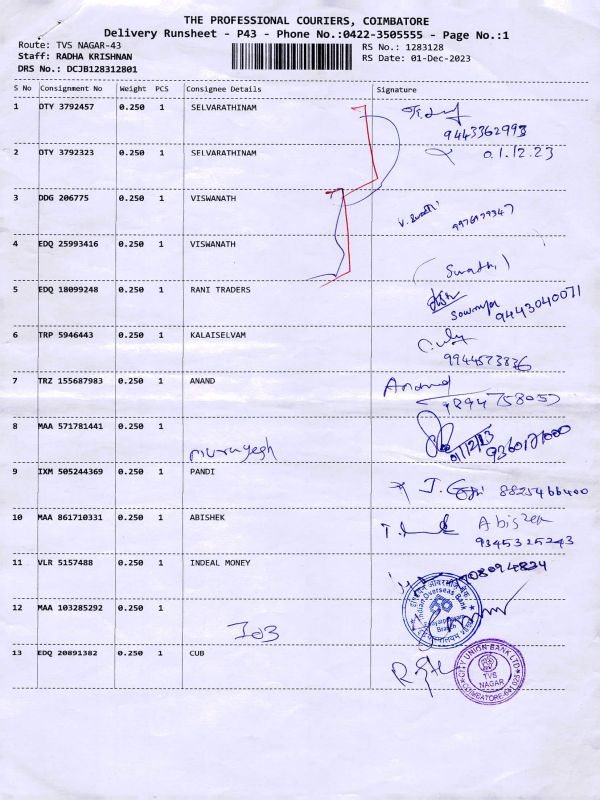 THE PROFESSIONAL COURIERS, COIMBATORE
Delivery Runsheet - P43 - Phone No.:0422-3505555 - Page No.:1
Route: TVS NAGAR-43
RS No.: 1283128
Staff: RADHA KRISHNAN
RS Date: 01-Dec-2023
DRS No.: DCJB128312801
S No Consignment No Weight PCS Consignee Details Signature
1 DTY 3792457 0.250 1 SELVARATHINAM
9443362993
2 DTY 3792323 0.250 1 SELVARATHINAM 01.12.23
3 DDG 206775 0.250 1 VISWANATH
4 EDQ 25993416 0.250 1 VISWANATH
(Swathi)
5 EDQ 18099248 0.250 1 RANI TRADERS
Sowmya 9443040071
6 TRP 5946443 0.250 1 KALAISELVAM
9944573836
7 TRZ 155687983 0.250 1 ANAND Anand
8 MAA 571781441 0.250 1
murugesh
9 IXM 505244369 0.250 1 PANDI
8825466400
10 MAA 861710331 0.250 1 ABISHEK
9345325243
11 VLR 5157488 0.250 1 INDEAL MONEY
12 MAA 103285292 0.250 1
Indian Overseas Bank
Branch
13 EDQ 20891382 0.250 1 CUB
CITY UNION BANK LTD
TVS
NAGAR
COIMBATORE-641 025